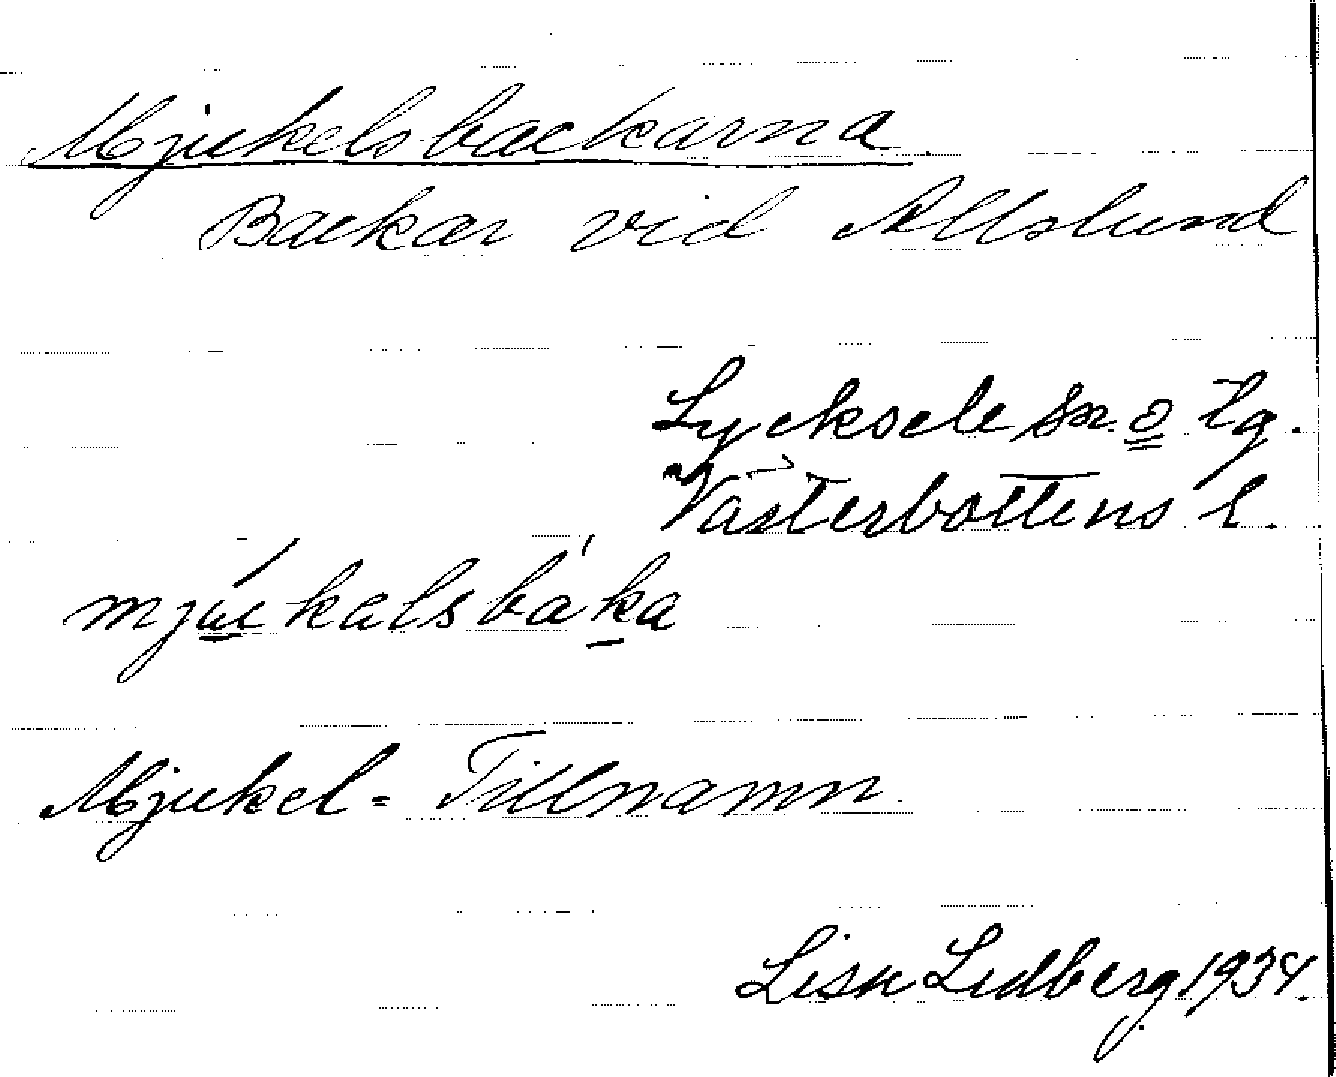 Mjukelsbackarna.
Backar vid Allslund
Lycksele sn. o tg.
Västerbottens l.
mjúkalsbáka
Mjukel = Tillnamn.
Lisa Lidberg 1934.